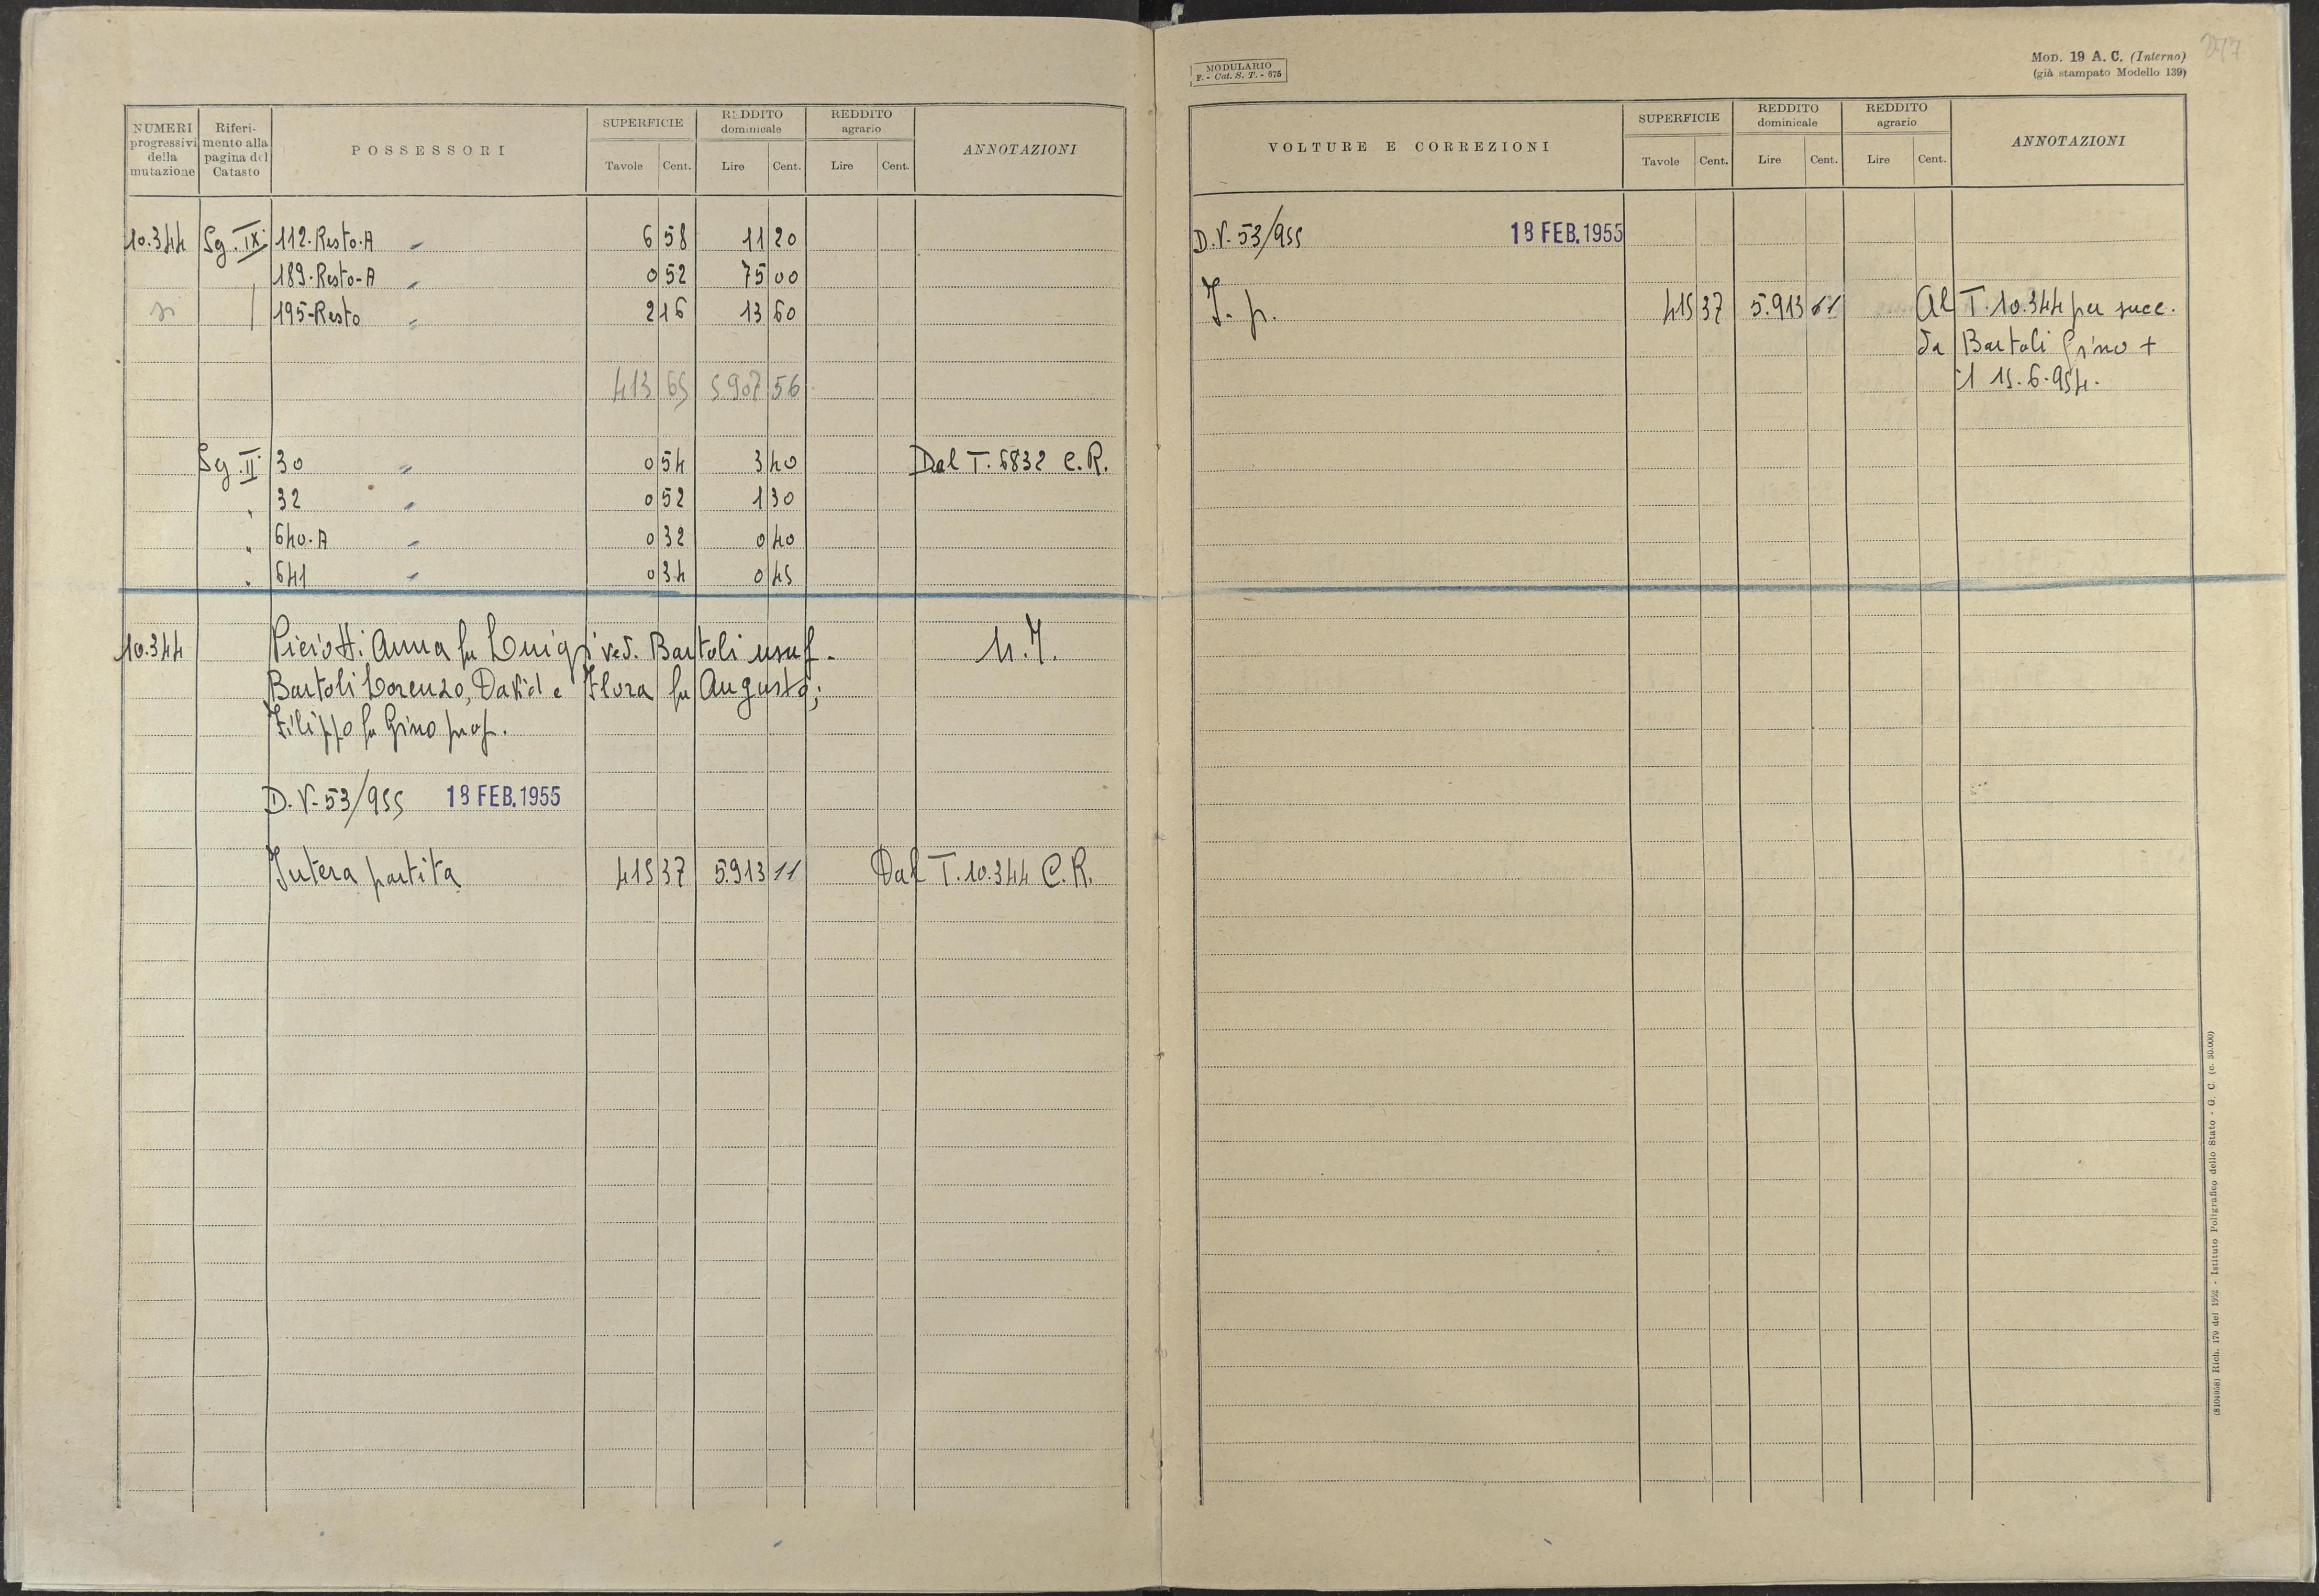 NUMERI progressivi della mutazione | Riferimento alla pagina del Catasto | POSSESSORI | SUPERFICIE Tavole Cent. | REDDITO dominicale Lire Cent. | REDDITO agrario Lire Cent. | ANNOTAZIONI
10.344 Sg. IX 112-Resto-A " 6 58 11 20
189-Resto-A " 0 52 75 00
si 195-Resto " 2 16 13 60
413 65 5.907 56
Sg. II 30 " 0 54 3 40 Dal T. 6832 C.R.
" 32 " 0 52 1 30
" 640-A " 0 32 0 40
" 641 " 0 34 0 45
10.344 Pieiotti Anna fu Luigi ved. Bartoli usuf. n.I.
Bartoli Lorenzo, David e Flora fu Augusto;
Filippo fu Gino prop.
D.V. 53/955 18 FEB. 1955
Intera partita 415 37 5.913 11 Dal T. 10.344 C.R.
MODULARIO
F. - Cat. S. T. - 675
MOD. 19 A. C. (Interno)
(già stampato Modello 139)
VOLTURE E CORREZIONI | SUPERFICIE Tavole Cent. | REDDITO dominicale Lire Cent. | REDDITO agrario Lire Cent. | ANNOTAZIONI
D.V. 53/955 18 FEB. 1955
I. p. 415 37 5.913 11 Al T. 10.344 per succ.
da Bartoli Gino +
il 15.6.954.
(8104058) Rich. 179 del 1952 - Istituto Poligrafico dello Stato - G. C. (c. 50.000)